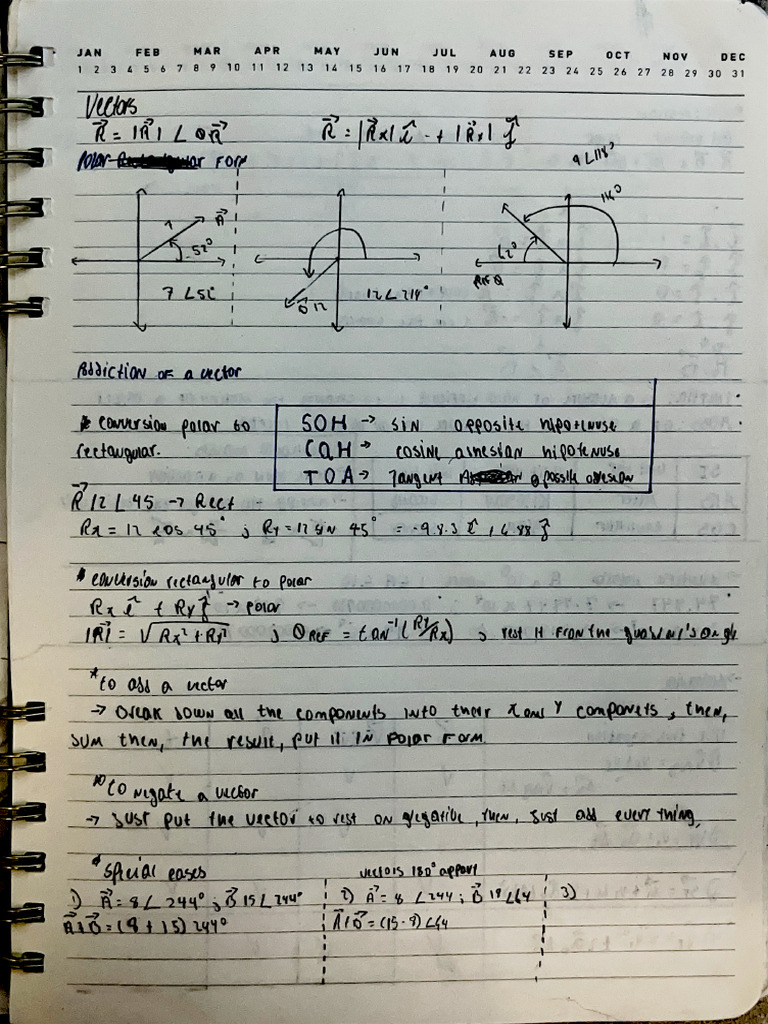 JAN FEB MAR APR MAY JUN JUL AUG SEP OCT NOV DEC
1 2 3 4 5 6 7 8 9 10 11 12 13 14 15 16 17 18 19 20 21 22 23 24 25 26 27 28 29 30 31
Vectors
R⃗ = |R⃗| ∠ θR⃗ R⃗ = |R⃗x| î + |R⃗y| ĵ
Polar Form
9 ∠118°
A⃗
52°
7 ∠52°
B⃗ 12
12∠214°
62°
Ref θ
Addiction of a vector
* conversion polar to
rectangular.
SOH → sin opposite hipotenuse
CAH → cosine adnesian hipotenuse
TOA → Tangent opossite adnesian
R⃗ 12 ∠ 45 → Rect
Rx = 12 cos 45° ; Ry = 12 sin 45° = -9.8.3 î , 6.88 ĵ
* conversion rectangular to polar
Rx î + Ry ĵ → polar
|R⃗| = √Rx² + Ry² ; θREF = tan⁻¹ (Ry/Rx) ; rest it from the
*to add a vector
→ Break down all the components into their x and y componets, then,
sum then, the result, put it in Polar Form.
*to negate a vector
→ Just put the vector to rest on negatibe, then, just add every thing,
*special cases vectors 180° appart
1) A⃗ = 8 ∠ 244° ; B⃗ 15 ∠244° 2) A⃗ = 8 ∠244 ; B⃗ ∠64 3)
A⃗+B⃗ = (8 + 15) 244° A⃗+B⃗ = (15-8) ∠64